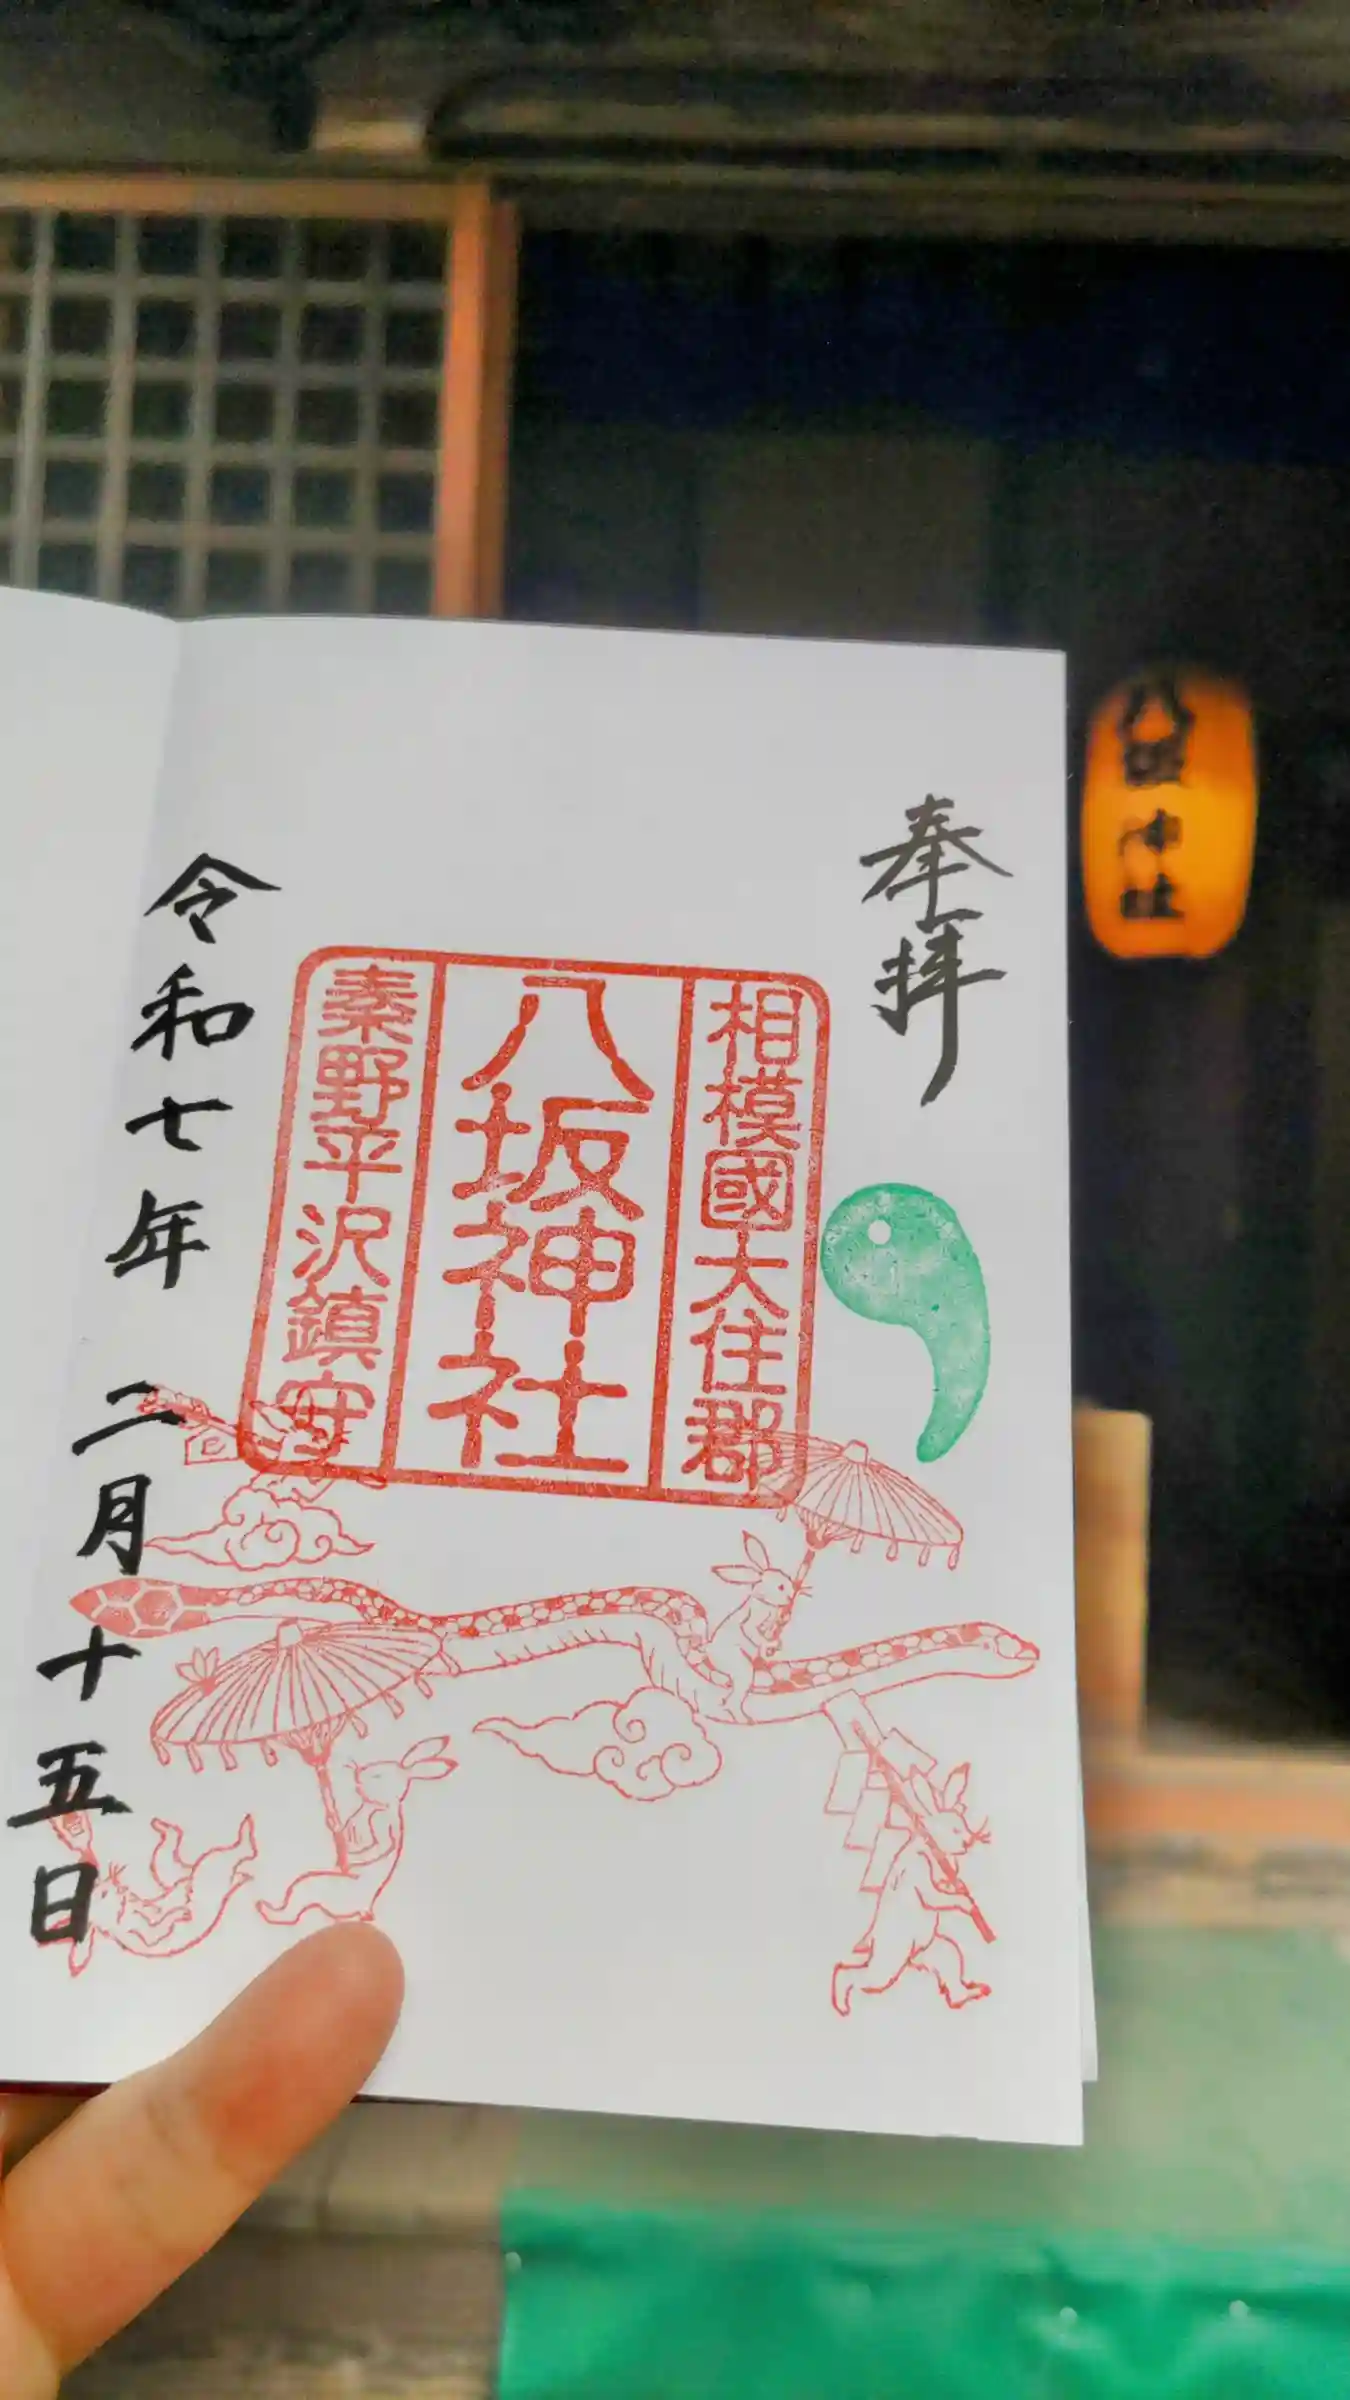 奉拝
相模國大住郡
八坂神社
秦野平沢鎮守
令和七年二月十五日
八坂神社